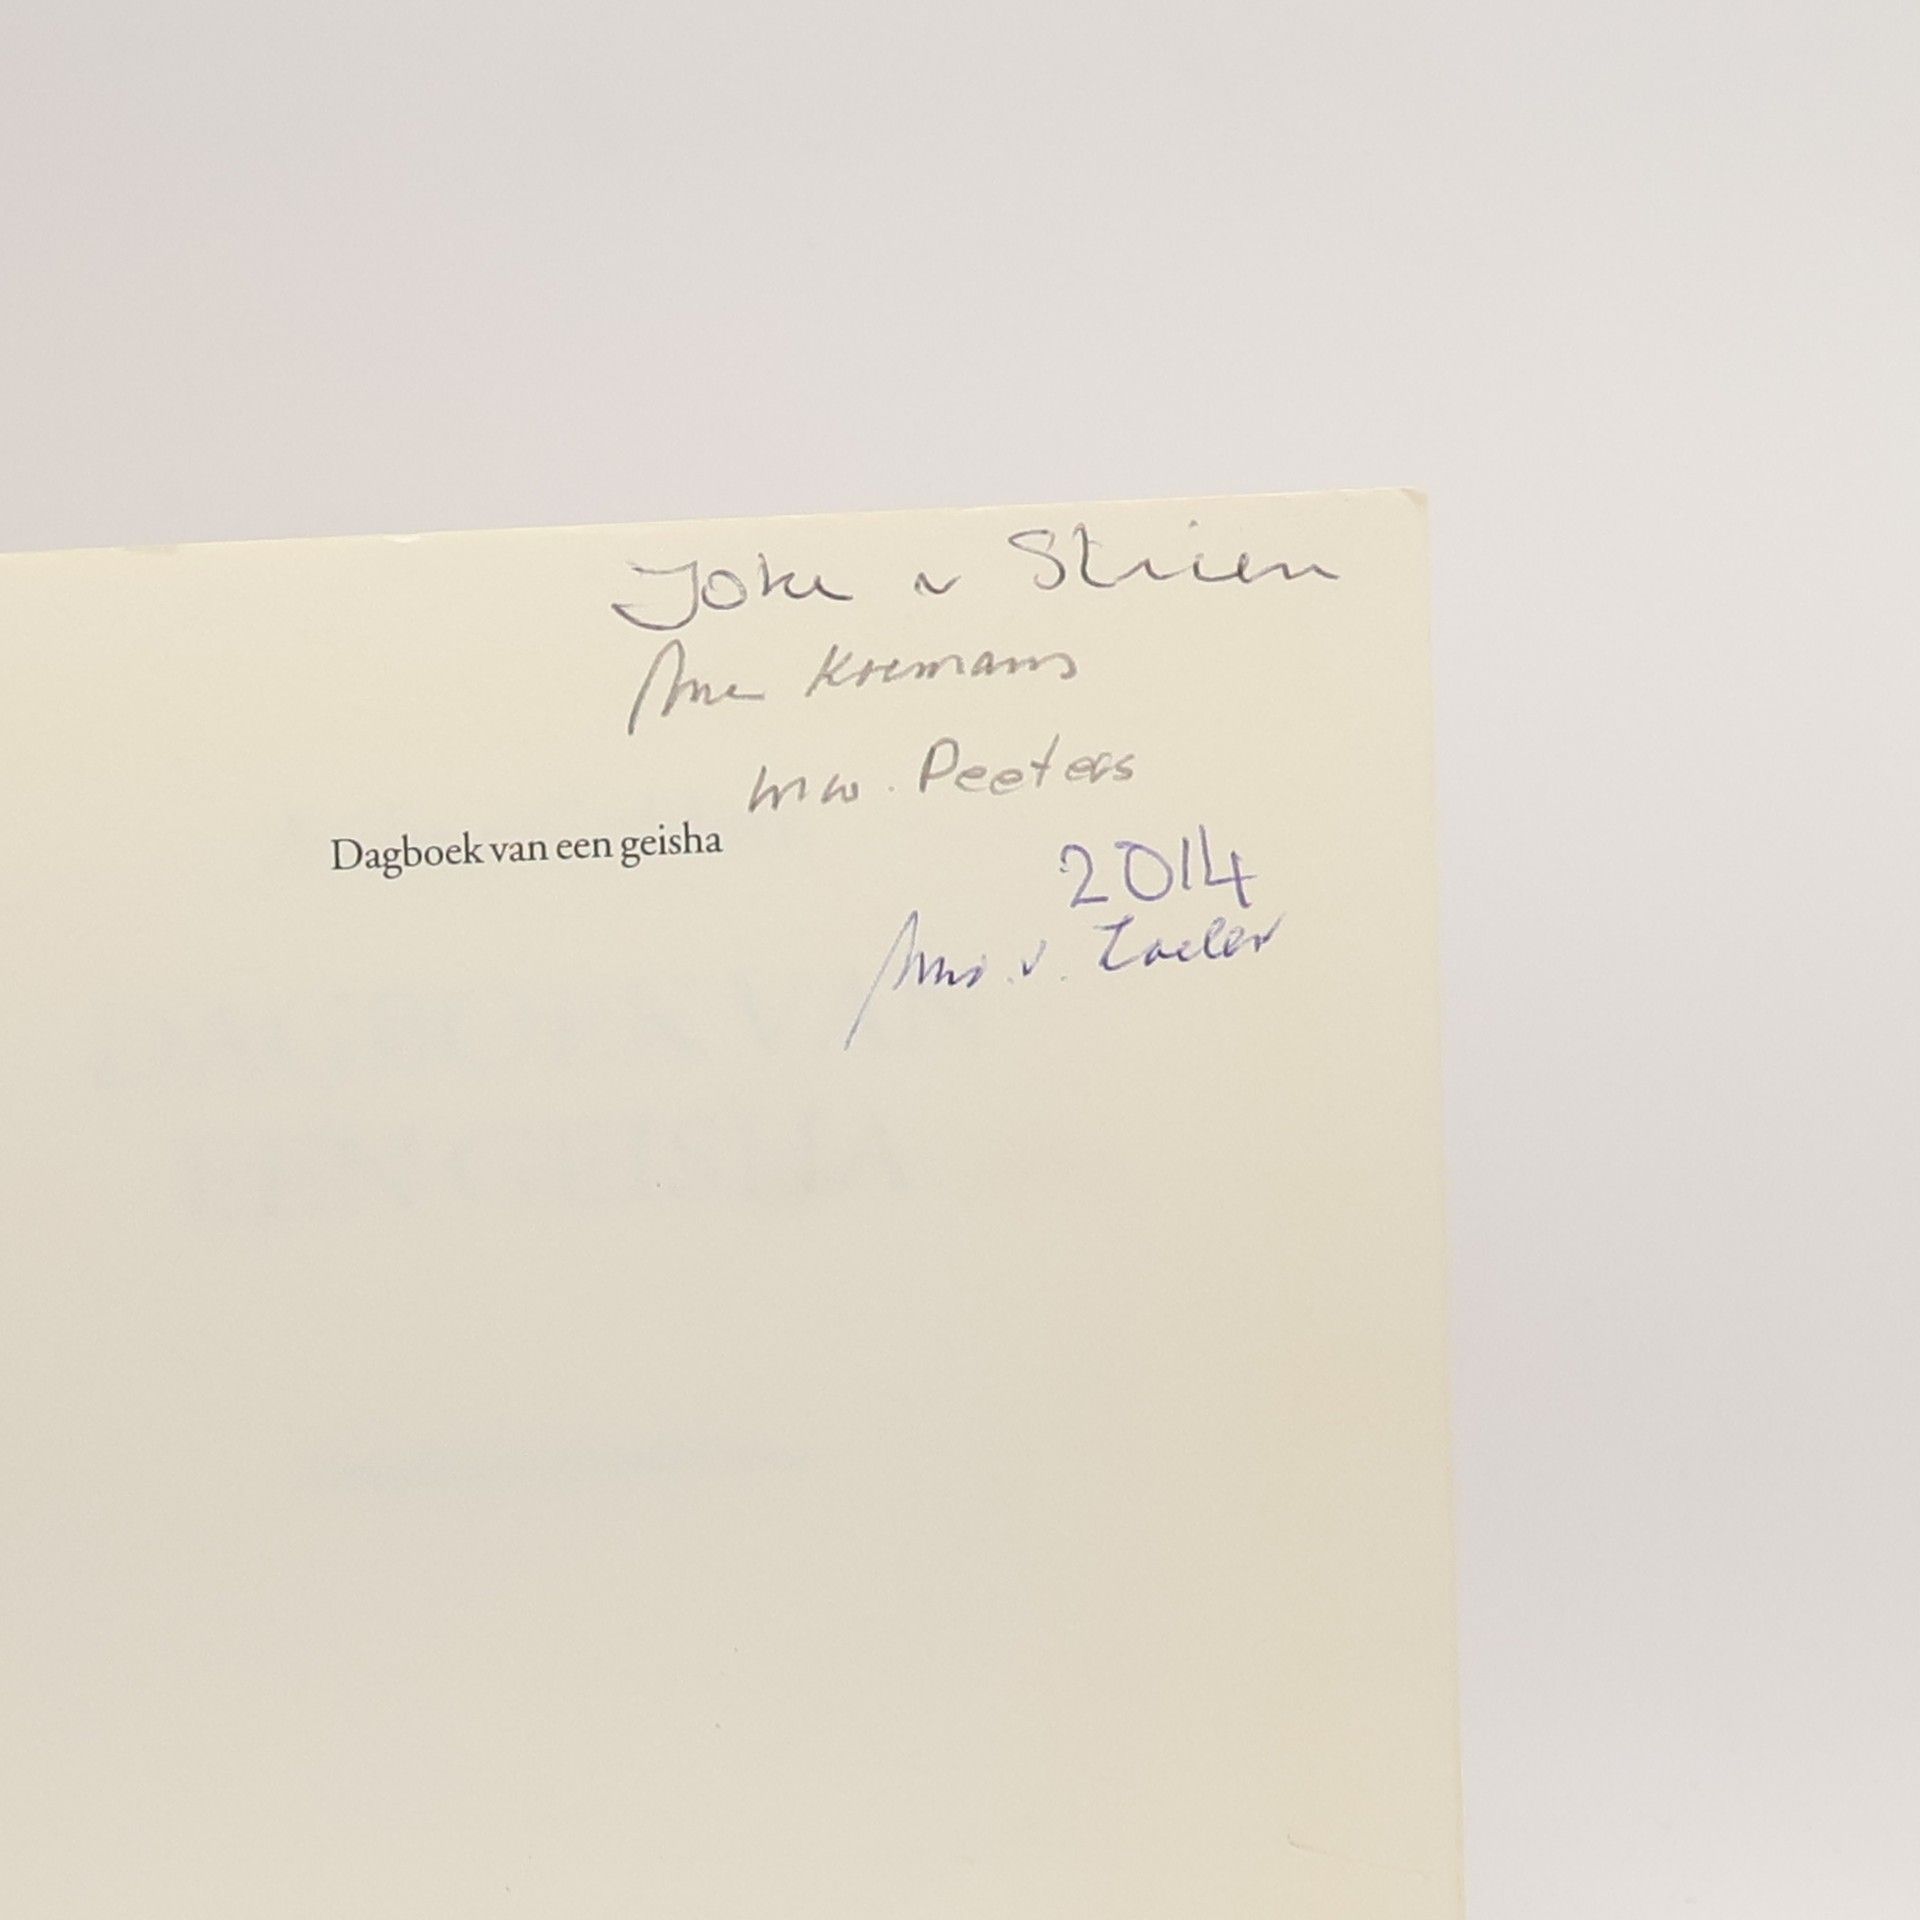 Joke v Strien
Koemans
mw. Peeters
Dagboek van een geisha
2014
v.